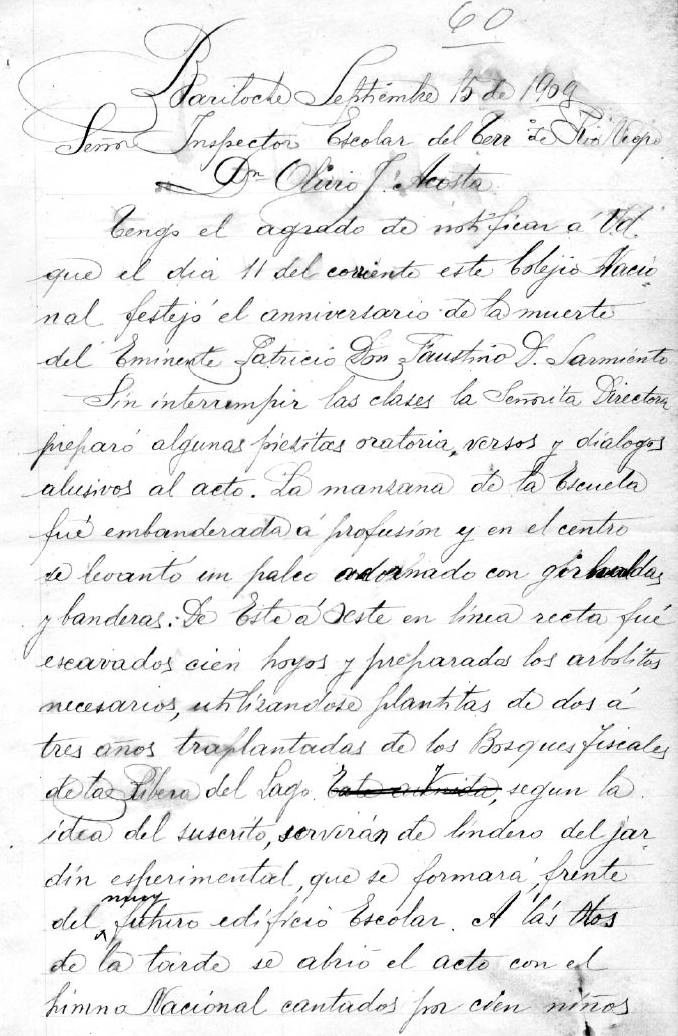 60
Bariloche Septiembre 15 de 1909
Señor Inspector Escolar del Terr.º de Rio Negro
Dn Olirio J. Acosta
Tengo el agrado de notificar á Ud.
que el dia 11 del coriente este Colejio Nacio
nal festejó el anniversario de la muerte
del Eminente Patricio Don Faustino D. Sarmiento
Sin interrumpir las clases la Señorita Directora
preparó algunas piesitas oratoria, versos y dialogos
alusivos al acto. La manzana de la Escuela
fué embanderada á profusión y en el centro
se levantó un palco adornado con girhaldas
y banderas. De Este á Oeste en línea recta fué
escavados cien hoyos y preparados los arbolitos
necesarios, utilizandose plantitas de dos á
tres años traplantadas de los Bosques fiscales
de la Ribera del Lago, segun la
idea del suscrito, servirán de lindero del jar
dín esperimental, que se formará, frente
del muy futuro edificio Escolar. A las dos
de la tarde se abrió el acto con el
himno Nacional cantados por cien niños